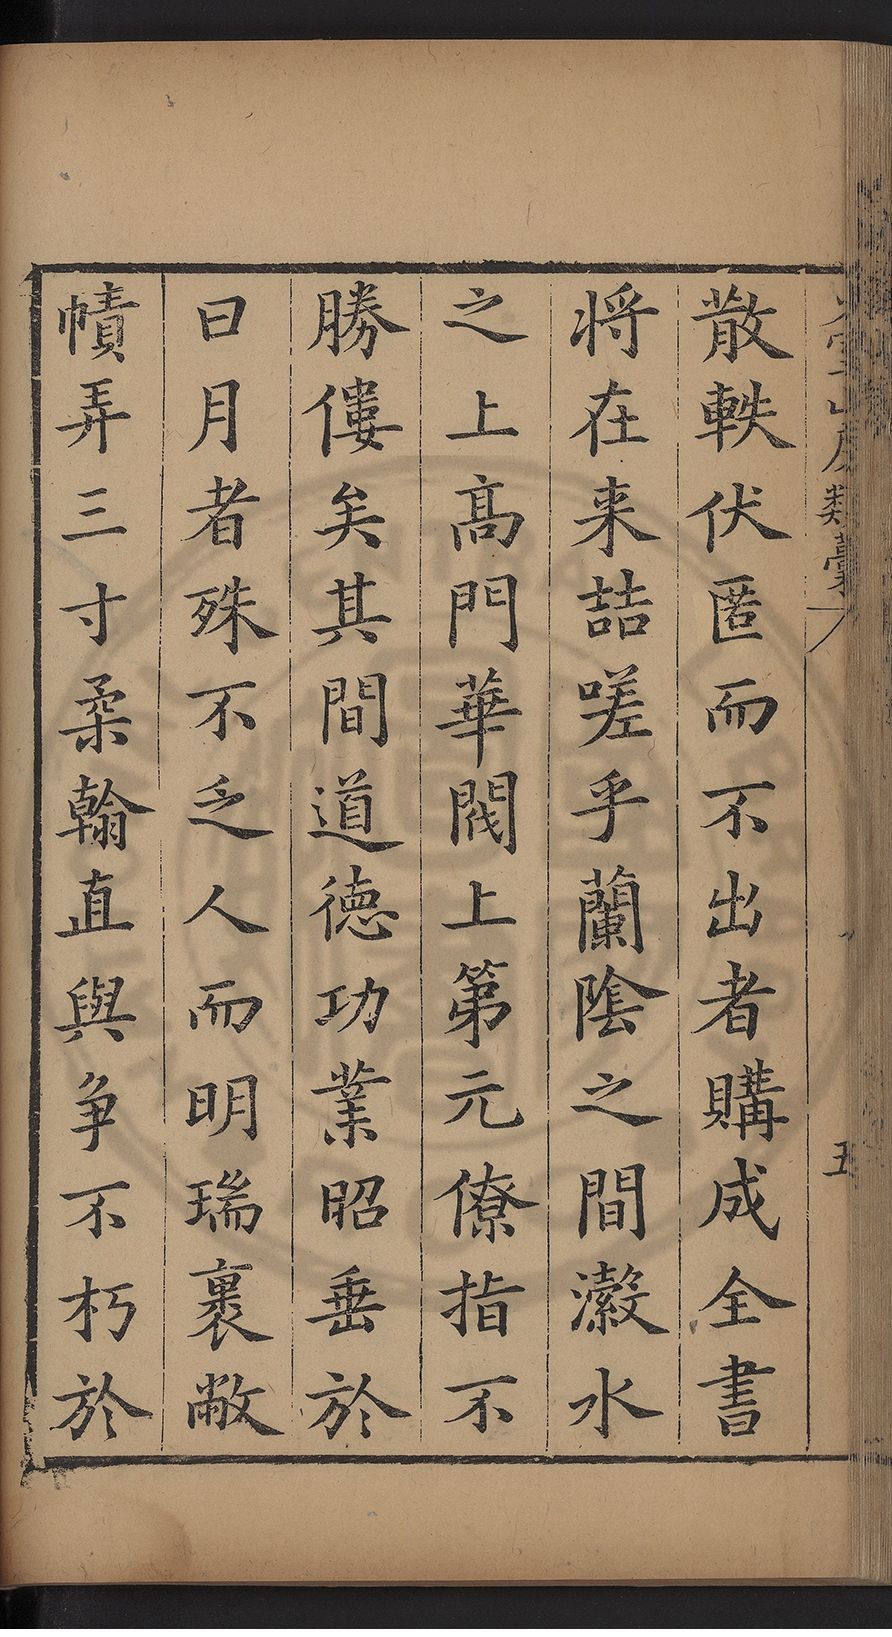 類藁
五
散軼伏匿而不出者購成全書
將在来喆嗟乎蘭陰之間瀫水
之上高門華閥上第元僚指不
勝僂矣其間道德功業昭垂於
日月者殊不乏人而明瑞裹敝
幘弄三寸柔翰直與争不朽於